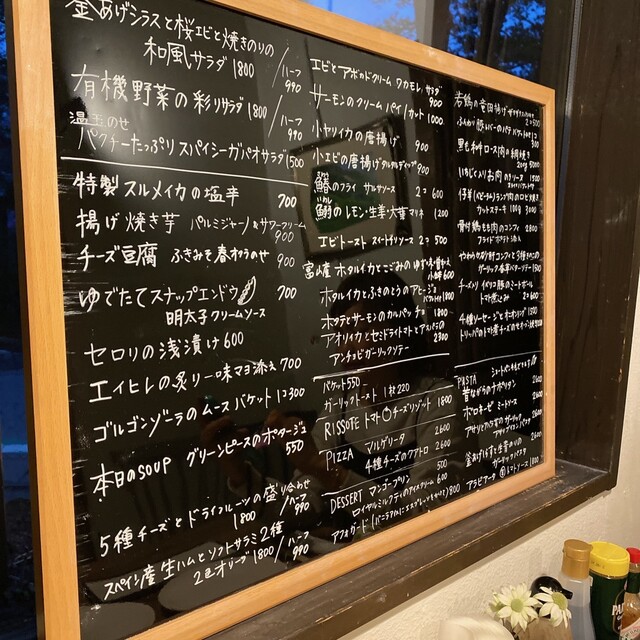 釜あげシラスと桜エビと焼きのりの
和風サラダ 1800 /ハーフ 990
有機野菜の彩りサラダ 1800 /ハーフ 990
温玉のせ
パクチーたっぷりスパイシーガパオサラダ 1500
特製スルメイカの塩辛 700
揚げ焼き芋 パルミジャーノ&サワークリーム 900
チーズ豆腐 ふきみそ春オクラのせ 900
ゆでたてスナップエンドウ 700
明太子クリームソース
セロリの浅漬け 600
エイヒレの炙り一味マヨ添え 700
ゴルゴンゾーラのムース バケット 1コ 300
本日のSOUP グリーンピースのポタージュ 550
5種チーズとドライフルーツの盛り合わせ
1800 /ハーフ 990
スペイン産生ハムとソフトサラミ2種
2色オリーブ 1800 /ハーフ 990
エビとアボカドクリーム ワカモレ サラダ 900
サーモンのクリームパイ 1カット 1000
小ヤリイカの唐揚げ 900
小エビの唐揚げタルタルディップ 900
鰆のフライ サルサソース 2コ 600
いわし
鰯のレモン・生姜・大葉マリネ 1200
エビトースト スイートチリソース 2コ 500
富山産 ホタルイカとこごみのゆず味噌和え
小鉢 600
ホタルイカとふきのとうのアヒージョ
バケット付 1800
ホタテとサーモンのカルパッチョ 1800
アオリイカとセミドライトマトとアスパラの 2300
アンチョビガーリックソテー
バケット 550
ガーリックトースト 1枚 220
RISSOTE トマトチーズリゾット 1800
PIZZA マルゲリータ 2600
4種チーズのクアトロ 2600
DESSERT マンゴープリン 500
ロイヤルミルクティのアイスクリーム 600
アフォガード(バニラアイスにエスプレッソをかけて) 800
若鶏の竜田揚げ
2コ 500
黒毛和牛ロース肉の網焼き
200g 5000
いちじくメリお肉のソース 1500
カットステーキ 100g 3000
骨付鶏もも肉のコンフィ 2800
フライドポテト添え
ガーリック香草バターソテー 1500
チーズ入り イベリコ豚のミートボール
トマト煮込み 2コ 600
4種ソーセージとチキオリング 1500
PASTA
昔ながらのナポリタン 2600
ボロネーゼ ミートソース 2600
2600
釜あげしらすと生青のりの 2600
アラビアータ